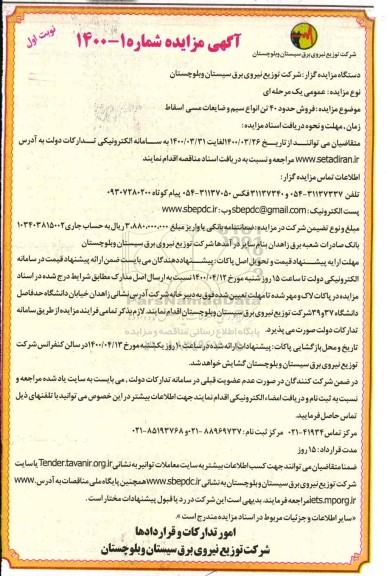 نوبت اول
آگهی مزایده شماره ۱-۱۴۰۰
شرکت توزیع نیروی برق سیستان وبلوچستان
دستگاه مزایده گزار: شرکت توزیع نیروی برق سیستان وبلوچستان
نوع مزایده: عمومی یک مرحله ای
موضوع مزایده: فروش حدود ۴۰ تن انواع سیم و ضایعات مسی اسقاط
زمان، مهلت و نحوه دریافت اسناد مزایده:
متقاضیان می توانند از تاریخ ۱۴۰۰/۰۳/۲۶ لغایت ۱۴۰۰/۰۳/۳۱ به سامانه الکترونیکی تدارکات دولت به آدرس
www.setadiran.ir مراجعه و نسبت به دریافت اسناد مناقصه اقدام نمایند
اطلاعات تماس مزایده گزار:
تلفن ۳۱۱۳۷۳۳۷-۰۵۴ و ۳۱۱۳۷۳۴۰ فکس ۳۱۱۳۷۰۵۰-۰۵۴ پیام کوتاه ۰۹۳۰۷۲۸۰۲۰۰
پست الکترونیک: sbepdc@gmail.com وب: www.sbepdc.ir
مبلغ و نوع تضمین شرکت در مزایده: ضمانتنامه بانکی یا واریز مبلغ ۳،۸۸۰،۰۰۰،۰۰۰ ریال به حساب جاری ۰۱۰۳۴۰۳۸۱۵۰۰۲
بانک صادرات شعبه برق زاهدان بنام سایر درآمدها شرکت توزیع نیروی برق سیستان وبلوچستان
مهلت ارایه پیشنهاد قیمت و تحویل اصل پاکات: پیشنهاددهندگان می بایست ضمن ارائه پیشنهاد قیمت در سامانه
الکترونیکی دولت تا ساعت ۱۵ روز شنبه مورخ ۱۴۰۰/۰۴/۱۲ نسبت به ارسال اصل مدارک مطابق شرایط درج شده در اسناد
مزایده در پاکات لاک و مهر شده تا مهلت تعیین شده فوق به دبیرخانه شرکت آدرس نشانی زاهدان خیابان دانشگاه حدفاصل
دانشگاه ۳۷ و ۳۹ شرکت توزیع نیروی برق سیستان وبلوچستان اقدام نمایند. لازم بذکر تمامی فرایند مزایده از طریق سامانه
تدارکات دولت صورت می پذیرد.
تاریخ و محل بازگشایی پاکات: پیشنهادات ارائه شده در ساعت ۱۰ روز یکشنبه مورخ ۱۴۰۰/۰۴/۱۳ در سالن کنفرانس شرکت
توزیع نیروی برق سیستان و بلوچستان گشایش خواهد شد.
در ضمن شرکت کنندگان در صورت عدم عضویت قبلی در سامانه تدارکات دولت، می بایست به سایت یاد شده مراجعه و
نسبت به ثبت نام و دریافت امضاء الکترونیکی اقدام نمایند جهت اطلاعات بیشتر در این خصوص می توانید با تلفنهای ذیل
تماس حاصل فرمایید.
مرکز تماس ۴۱۹۳۴-۰۲۱ مرکز ثبت نام: ۸۸۹۶۹۷۳۷-۰۲۱ و ۸۵۱۹۳۷۶۸-۰۲۱
مدت قرارداد: ۱۵ روز
ضمنا متقاضیان می توانند جهت کسب اطلاعات بیشتر به سایت معاملات توانیر به نشانی Tender.tavanir.org.ir یا سایت
شرکت توزیع نیروی برق سیستان وبلوچستان به نشانی www.sbepdc.ir همچنین پایگاه ملی مناقصات به آدرس www.
iets.mporg.ir مراجعه فرمایند. بدیهی است این شرکت در رد یا قبول پیشنهادات مختار است.
«سایر اطلاعات و جزئیات مربوط در اسناد مزایده مندرج است».
امور تدارکات و قراردادها
شرکت توزیع نیروی برق سیستان وبلوچستان